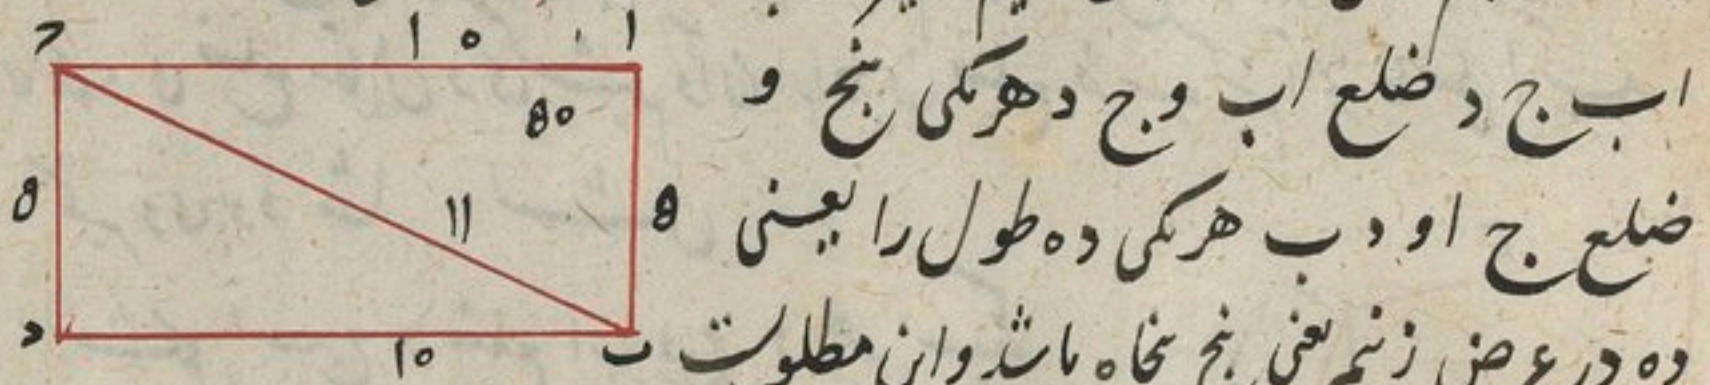 اب ج د ضلع اب و ج د هر یکی پنج و
ضلع ج ا و د ب هر یکی ده طول را یعنی
ده در عرض زنیم یعنی پنج پنجاه باشد و این مطلوبست
ا
۱۰
ح
۵۰
۵
۱۱
۵
ب
۱۰
د